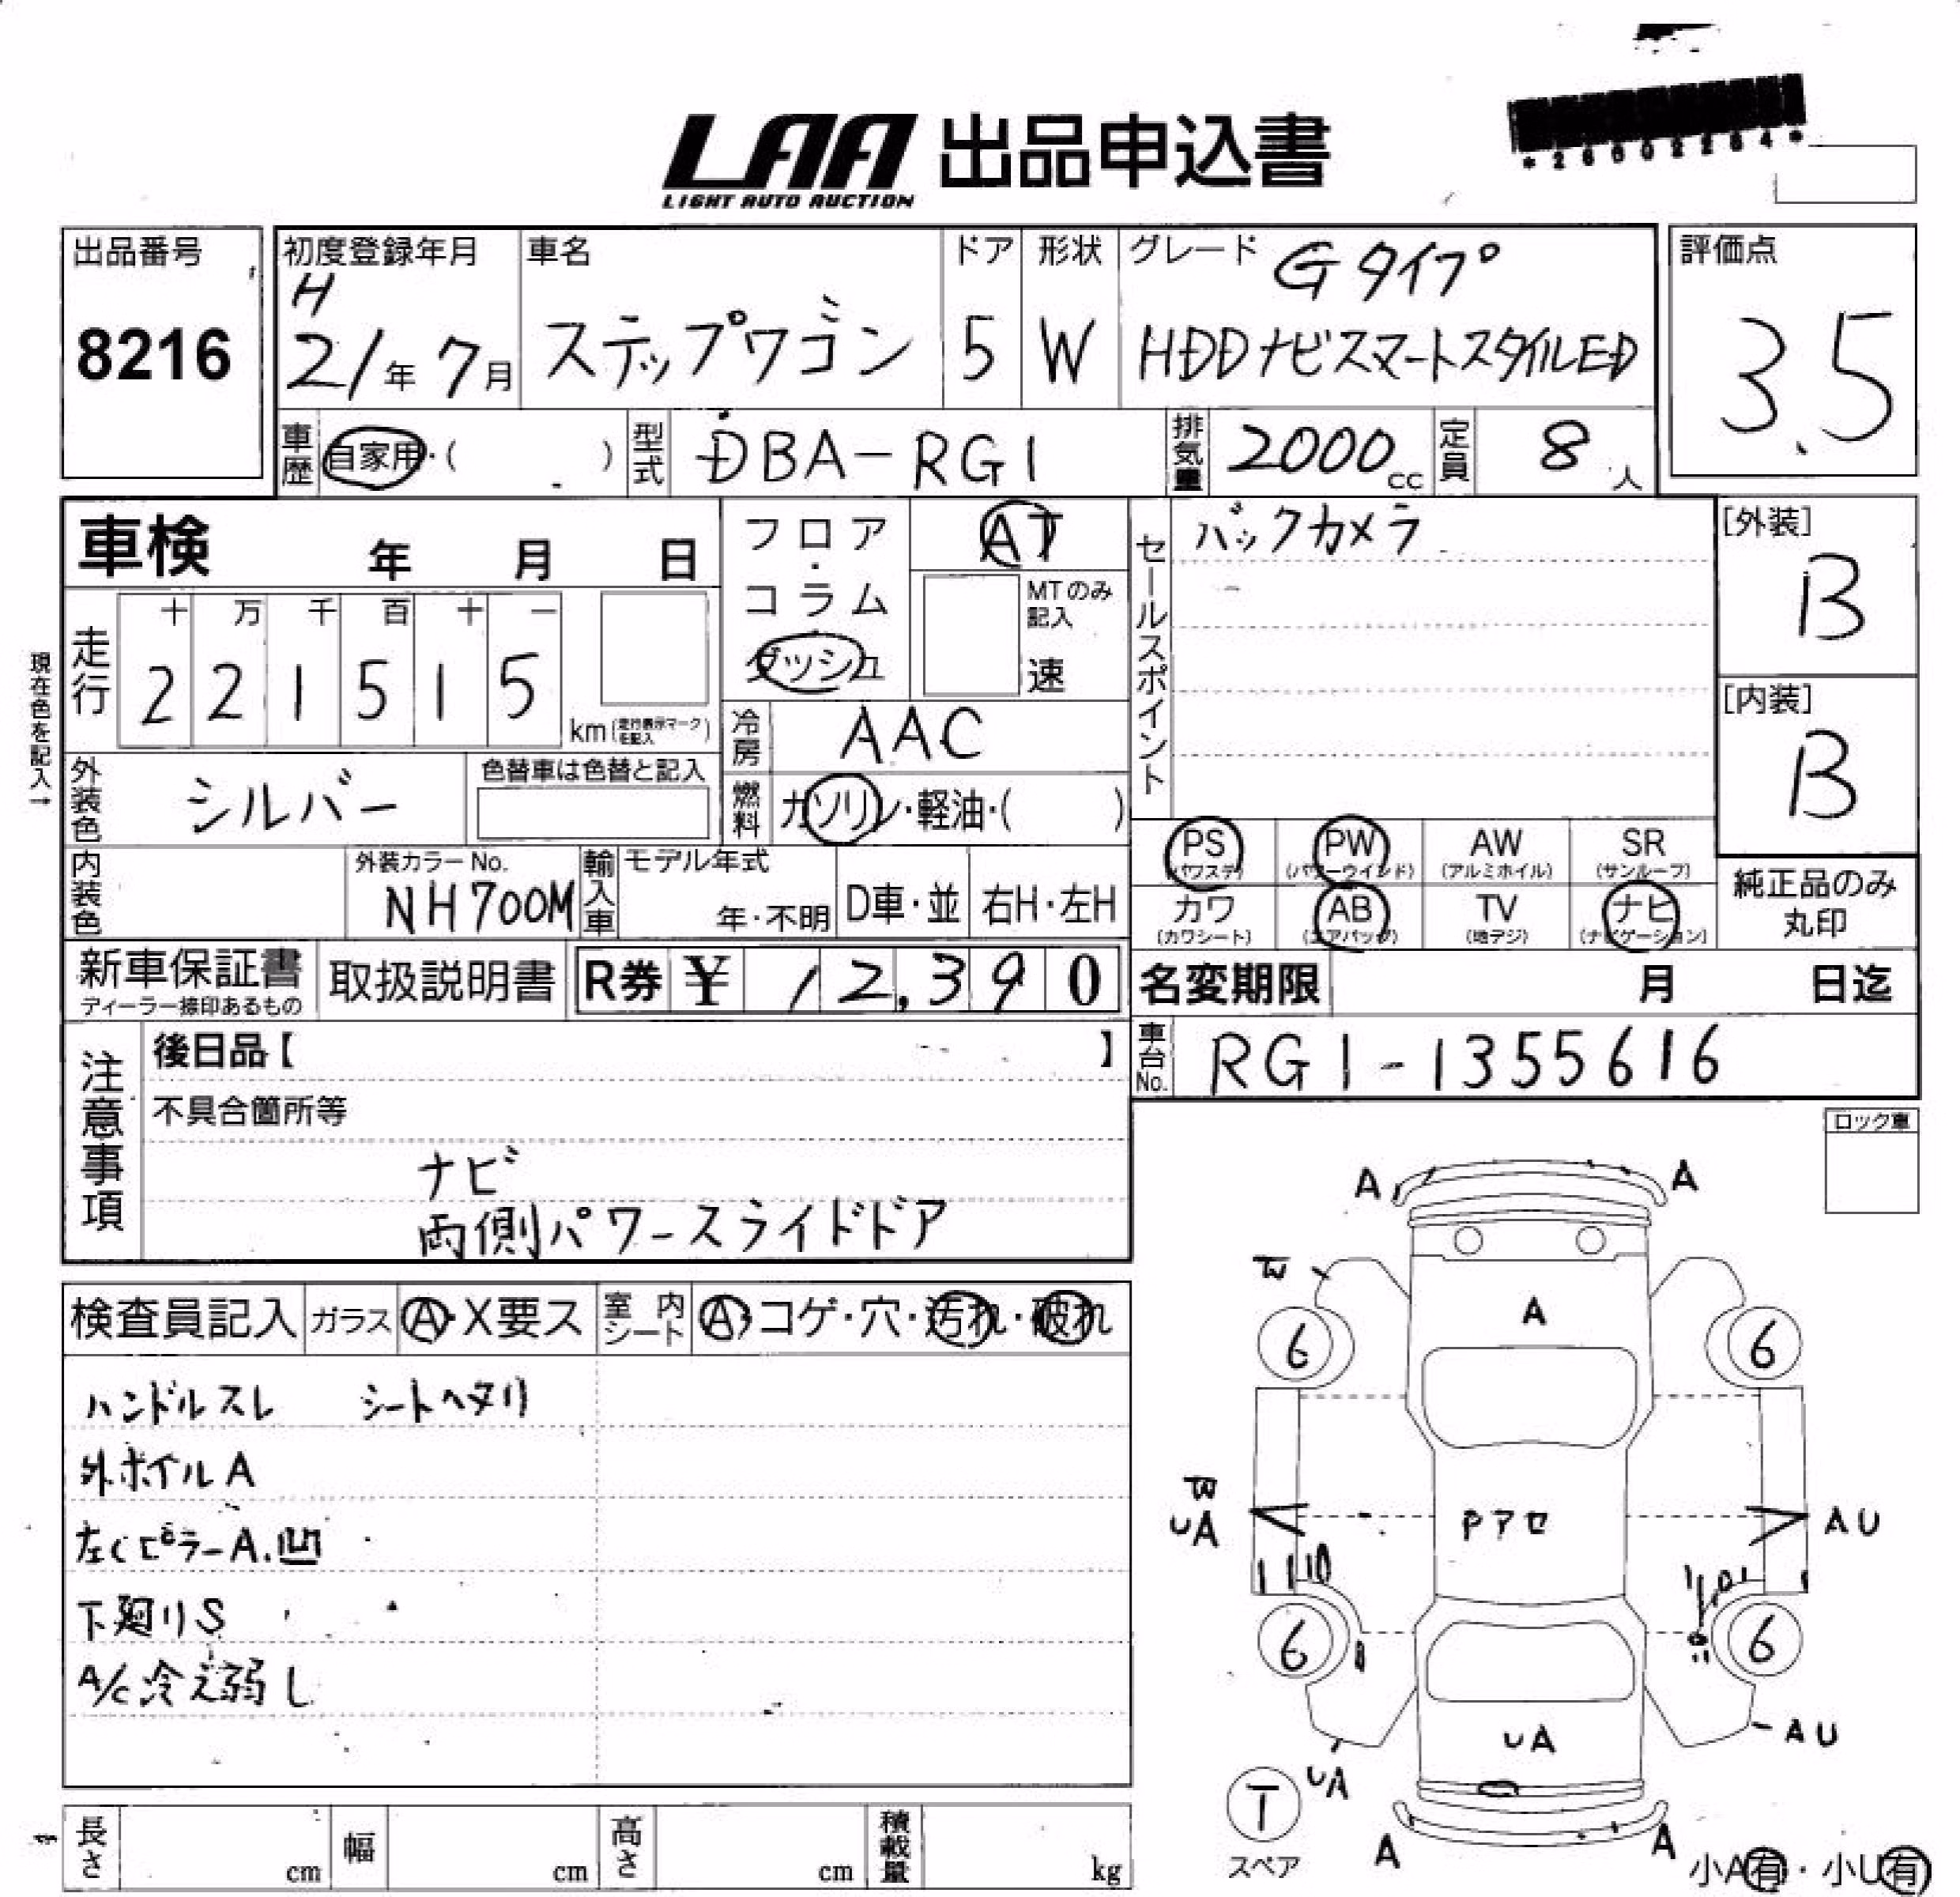 LAA 出品申込書
LIGHT AUTO AUCTION
*26602264*
出品番号
8216
初度登録年月
H
21年 7月
車名
ステップワゴン
ドア
5
形状
W
グレード Gタイプ
HDDナビスマートスタイルED
評価点
3.5
車歴 自家用・( )
型式 DBA-RG1
排気量 2000cc
定員 8人
車検 年 月 日
フロア・コラム・ダッシュ
AT
MTのみ記入
速
セールスポイント
バックカメラ
[外装]
B
[内装]
B
現在色を記入→
走行
十 万 千 百 十 一
2 2 1 5 1 5
km(走行表示マークを記入)
冷房 AAC
外装色 シルバー
色替車は色替と記入
燃料 ガソリン・軽油・( )
PS (パワステ)
PW (パワーウインド)
AW (アルミホイル)
SR (サンルーフ)
カワ (カワシート)
AB (エアバッグ)
TV (地デジ)
ナビ (ナビゲーション)
純正品のみ丸印
内装色
外装カラーNo.
NH700M
輸入車
モデル年式
年・不明
D車・並
右H・左H
新車保証書
ディーラー捺印あるもの
取扱説明書
R券 ¥ 12,390
名変期限 月 日迄
注意事項
後日品【 】
車台No. RG1-1355616
不具合箇所等
ナビ
両側パワースライドドア
ロック車
検査員記入 ガラス A・X要ス
室内シート A・コゲ・穴・汚れ・破れ
ハンドルスレ シートヘタリ
外ホイルA
左Cピラー A.凹
下廻りS
A/C冷え弱し
A A
W
A
6 6
W
UA
Pアセ
AU
6 6
UA
AU
UA
T
スペア
A A
小A有・小U有
長さ cm
幅 cm
高さ cm
積載量 kg